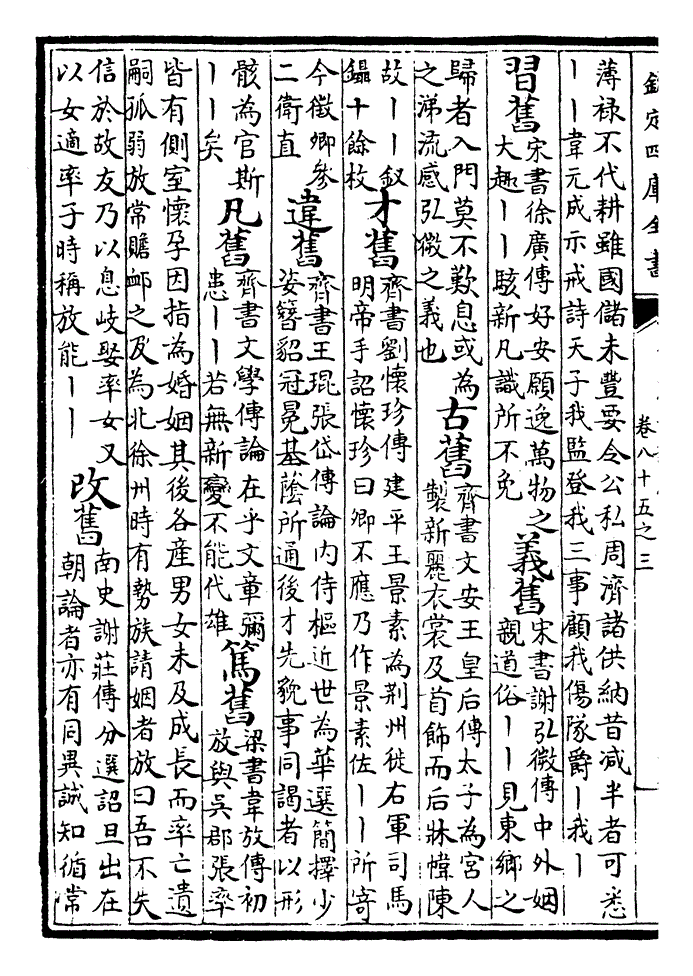 欽定四庫全書
卷八十五之三
薄禄不代耕雖國儲未豐要令公私周濟諸供納昔减半者可悉
丨丨韋元成示戒詩天子我監登我三事顧我傷隊爵丨我丨
習舊
宋書徐廣傳好安願逸萬物之
大趣丨丨駭新凡識所不免
義舊
宋書謝弘微傳中外姻
親道俗丨丨見東鄉之
歸者入門莫不歎息或為
之涕流感弘微之義也
古舊
齊書文安王皇后傳太子為宫人
製新麗衣裳及首飾而后牀帷陳
故丨丨釵
鑷十餘枚
才舊
齊書劉懷珍傳建平王景素為荆州徙右軍司馬
明帝手詔懷珍曰卿不應乃作景素佐丨丨所寄
今徵卿參
二衛直
違舊
齊書王琨張岱傳論内侍樞近世為華選簡擇少
姿簪貂冠冕基蔭所通後才先貌事同謁者以形
骸為官斯
丨丨矣
凡舊
齊書文學傳論在乎文章彌
患丨丨若無新變不能代雄
篤舊
梁書韋放傳初
放與吳郡張率
皆有側室懷孕因指為婚姻其後各産男女未及成長而率亡遺
嗣孤弱放常贍䘏之及為北徐州時有勢族請姻者放曰吾不失
信於故友乃以息岐娶率女又
以女適率子時稱放能丨丨
改舊
南史謝莊傳分選詔旦出在
朝論者亦有同異誠知循常